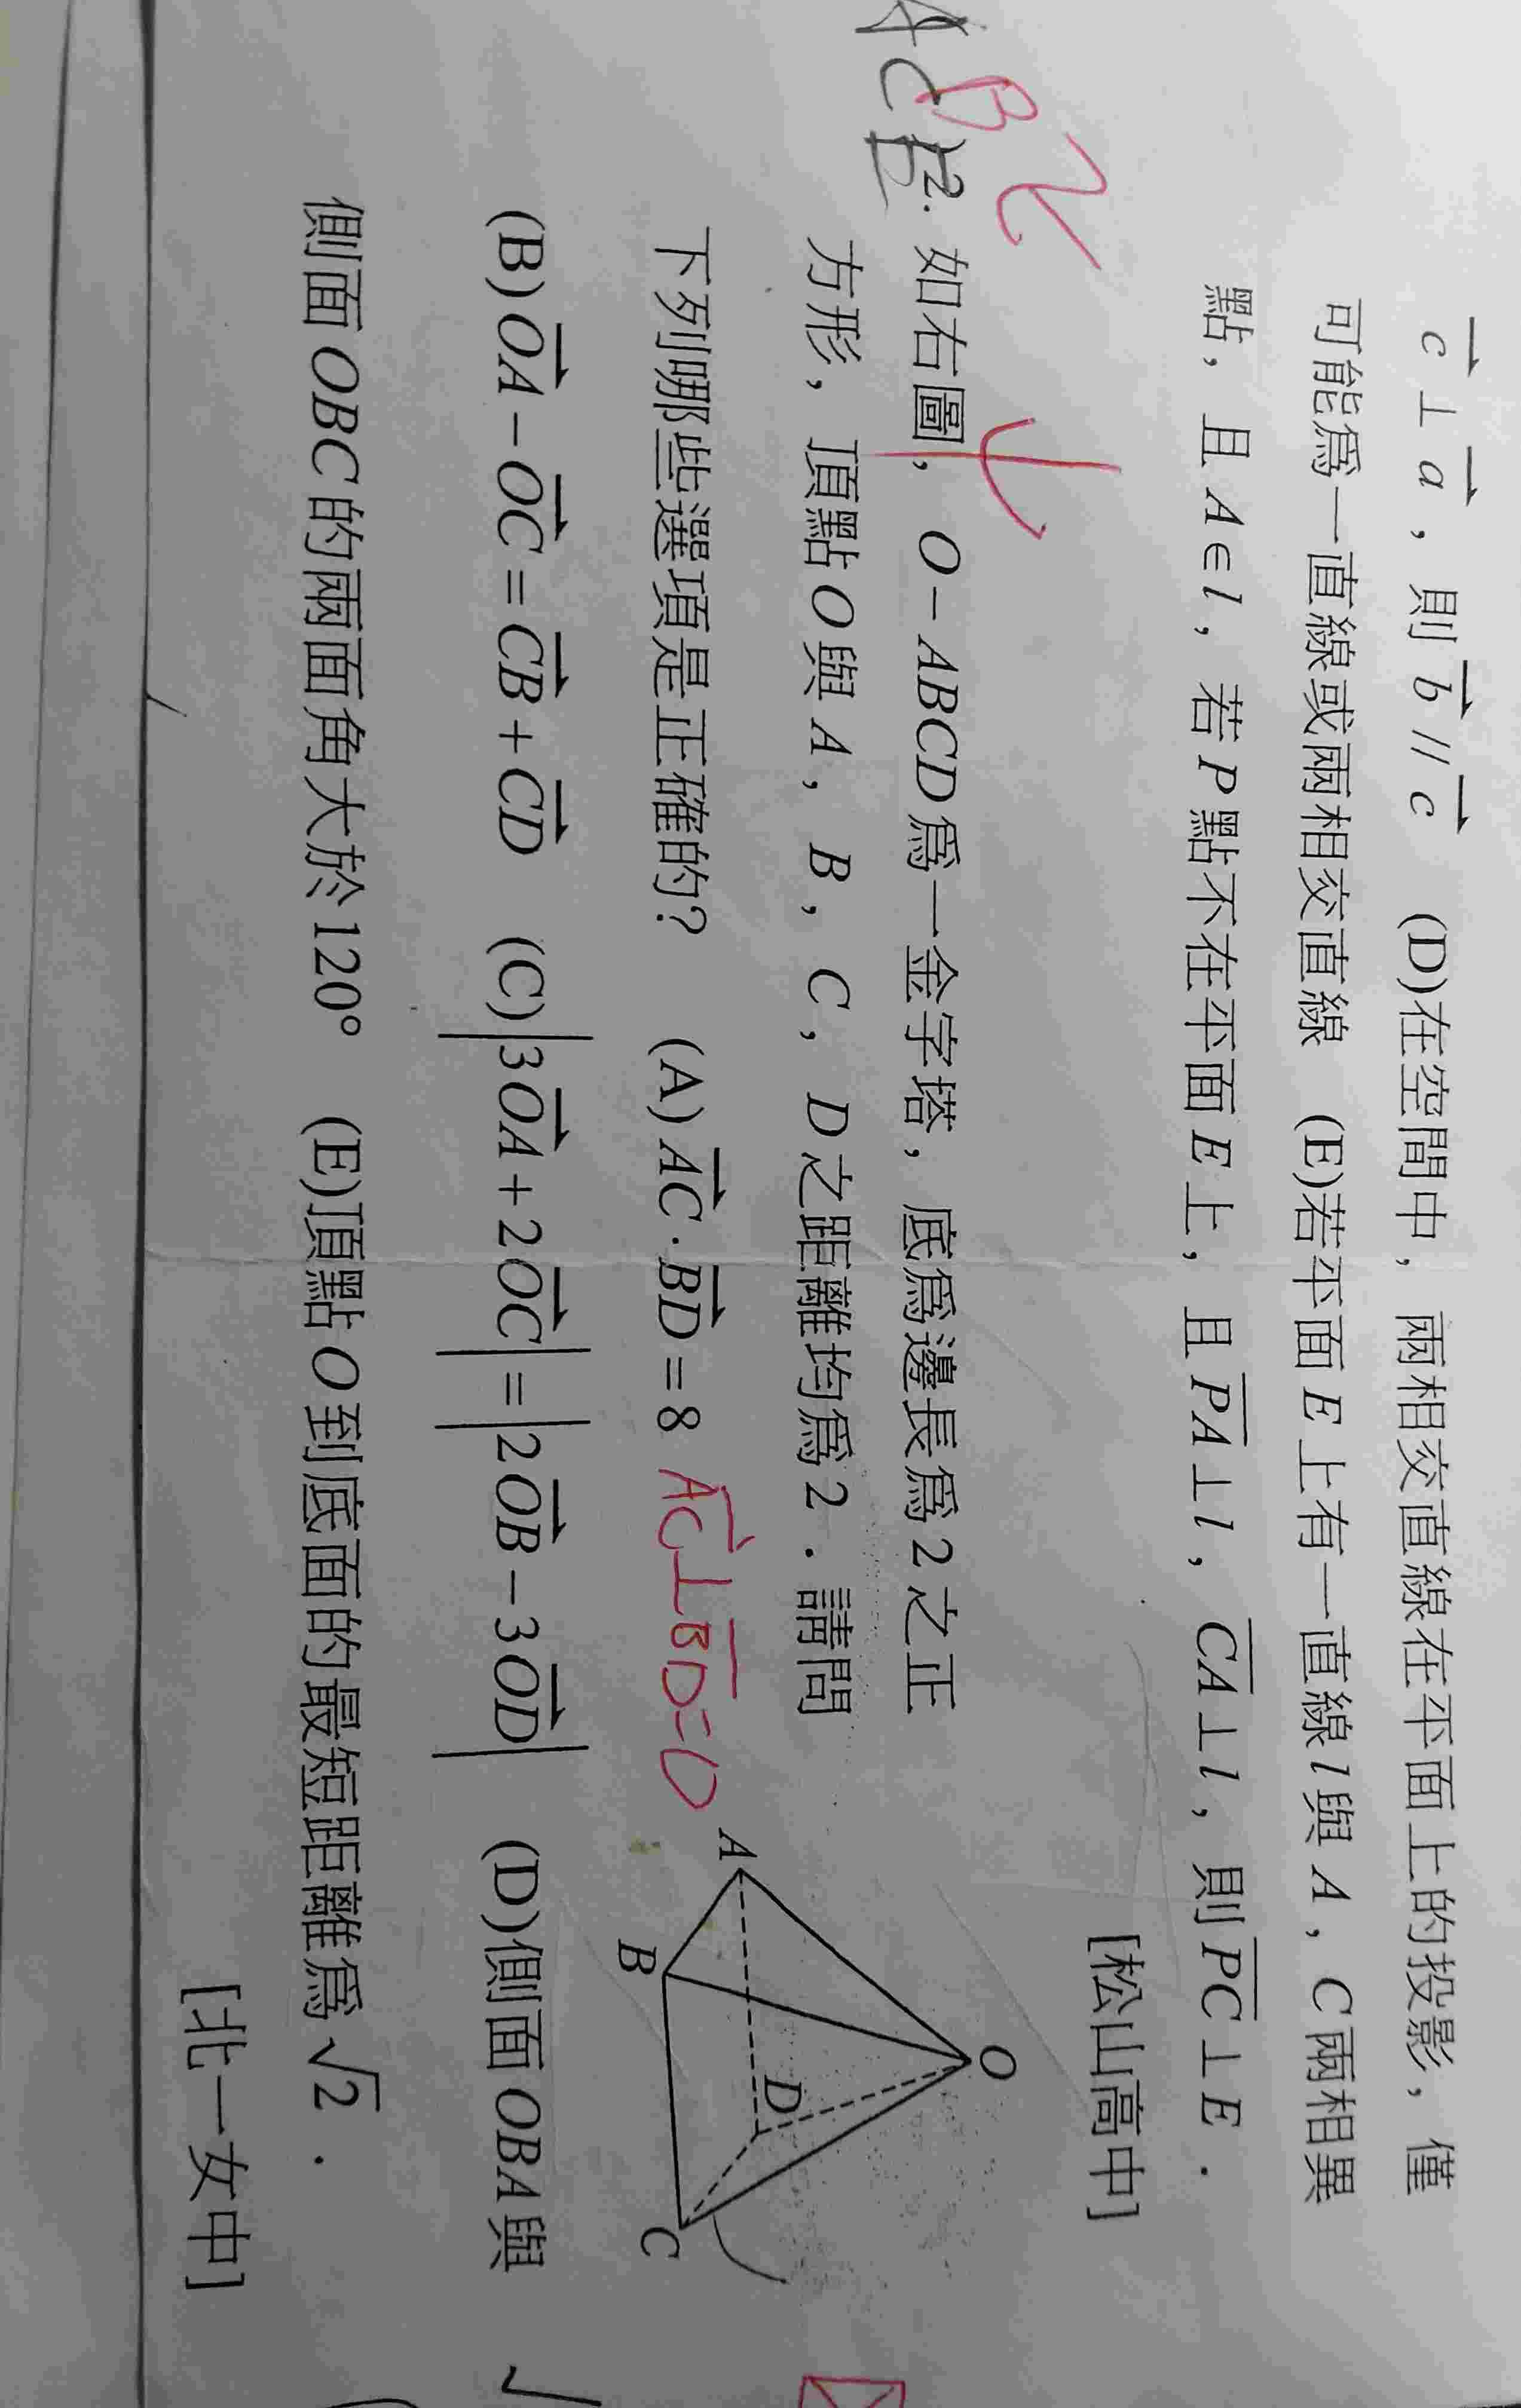 c⃗ ⊥ a⃗，則 b⃗ // c⃗ (D)在空間中，兩相交直線在平面上的投影，僅
可能為一直線或兩相交直線 (E)若平面 E 上有一直線 l 與 A，C 兩相異
點，且 A∈l，若 P 點不在平面 E 上，且 P̅A̅⊥l，C̅A̅⊥l，則 P̅C̅⊥E．
[松山高中]
B
2. 如右圖，O－ABCD 為一金字塔，底為邊長為 2 之正
方形，頂點 O 與 A，B，C，D 之距離均為 2．請問
下列哪些選項是正確的? (A) AC⃗·BD⃗=8 AC⃗⊥BD=0
(B) OA⃗－OC⃗=CB⃗+CD⃗ (C)|3OA⃗+2OC⃗|=|2OB⃗－3OD⃗| (D)側面 OBA 與
側面 OBC 的兩面角大於 120° (E)頂點 O 到底面的最短距離為 √2．
[北一女中]
O
A
D
B
C